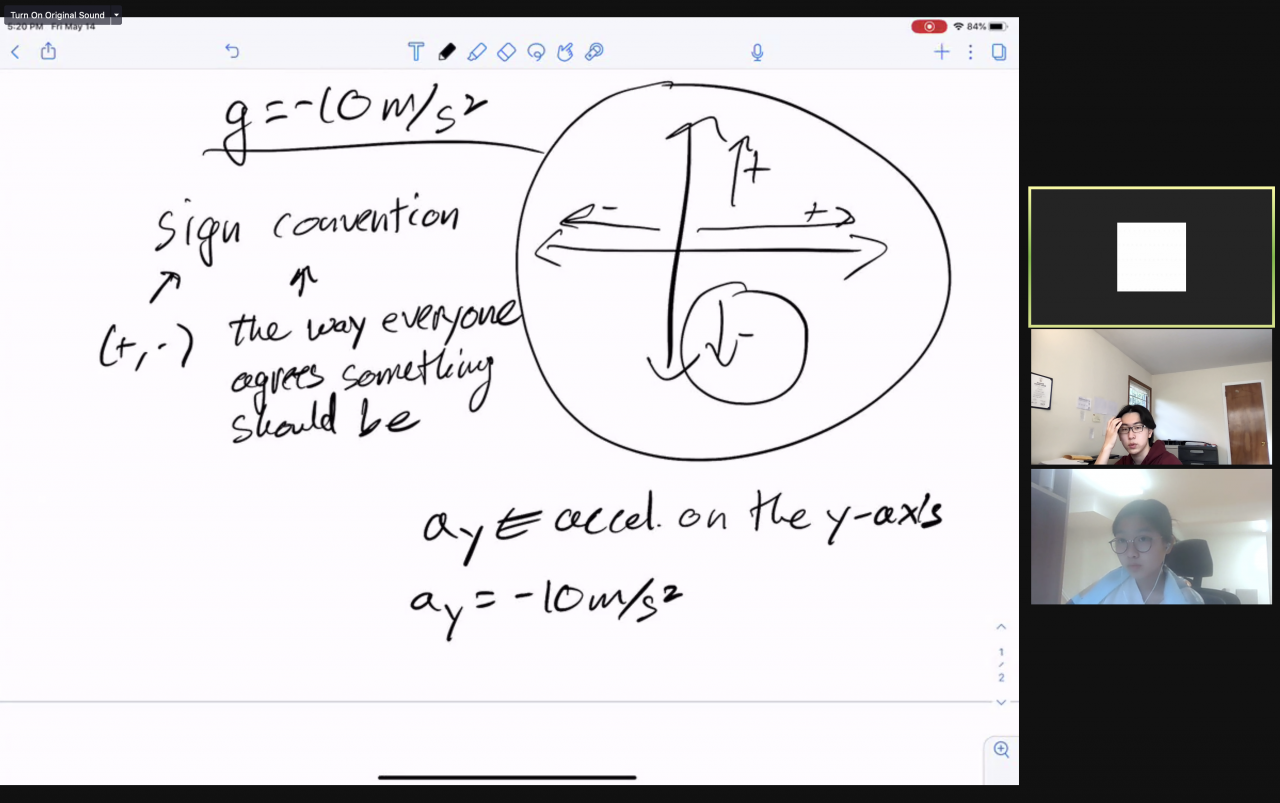 Turn On Original Sound
5:20 PM Fri May 14
84%
T
g = -10 m/s²
+
- +
sign convention
-
(+, -) the way everyone
agrees something
should be
ay ⋲ accel. on the y-axis
ay = -10 m/s²
1
/
2